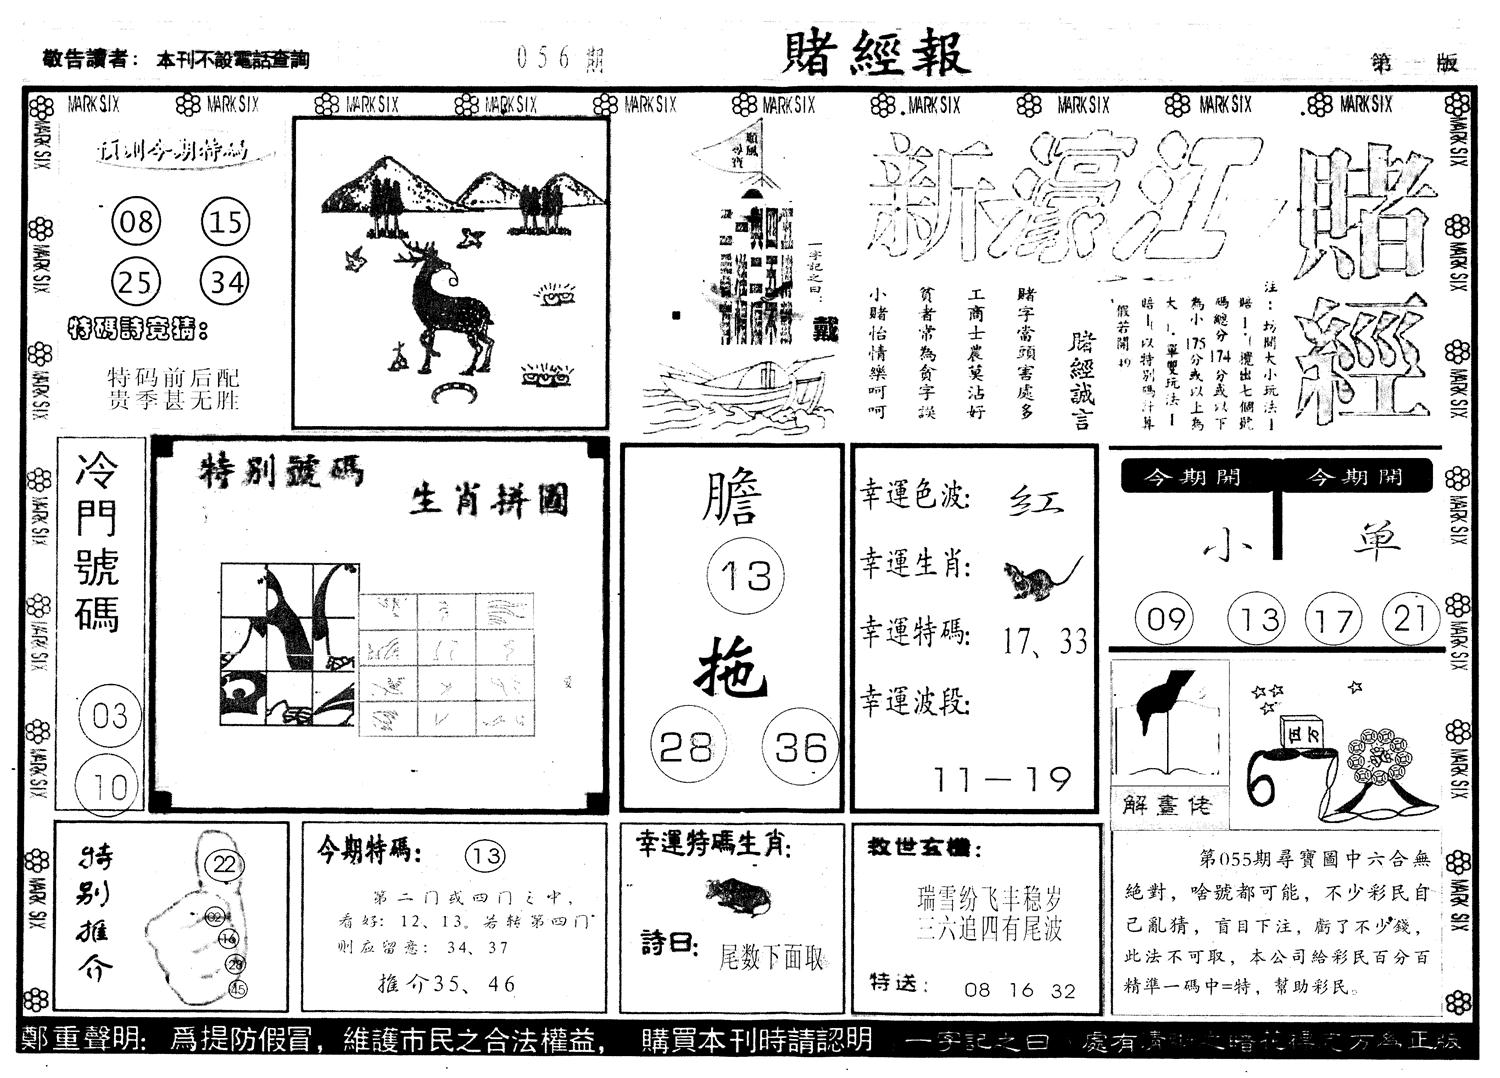 敬告讀者：本刊不設電話查詢
056期
賭經報
第一版
MARK SIX MARK SIX MARK SIX MARK SIX MARK SIX MARK SIX MARK SIX MARK SIX MARK SIX MARK SIX
預測今期特碼
08 15
25 34
特碼詩竞猜：
特码前后配
贵季甚无胜
順風得寶
一字記之曰：
戴
新濠江
賭經
賭經誠言
賭字當頭害處多
工商士農莫沾好
貧者常為貪字誤
小賭怡情樂呵呵
注：坊間大小玩法
碼總分174分或以下
為小175分或以上為
大
單雙玩法
以特別碼計算
假若開49
冷門號碼
03
10
特别號碼
生肖拼圖
膽
13
拖
28 36
幸運色波：紅
幸運生肖：
幸運特碼：17、33
幸運波段：
11－19
今期開 今期開
小 单
09 13 17 21
解畫佬
伍万
6
第055期尋寶圖中六合無
絕對，啥號都可能，不少彩民自
己亂猜，盲目下注，虧了不少錢，
此法不可取，本公司給彩民百分百
精準一碼中=特，幫助彩民。
特别推介
22
02
16
28
45
今期特碼：13
第二门或四门之中，
看好：12、13。若转第四门
则应留意：34、37
推介35、46
幸運特碼生肖：
詩曰：尾数下面取
救世玄機：
瑞雪纷飞丰稳岁
三六追四有尾波
特送：08 16 32
鄭重聲明：爲提防假冒，維護市民之合法權益，購買本刊時請認明